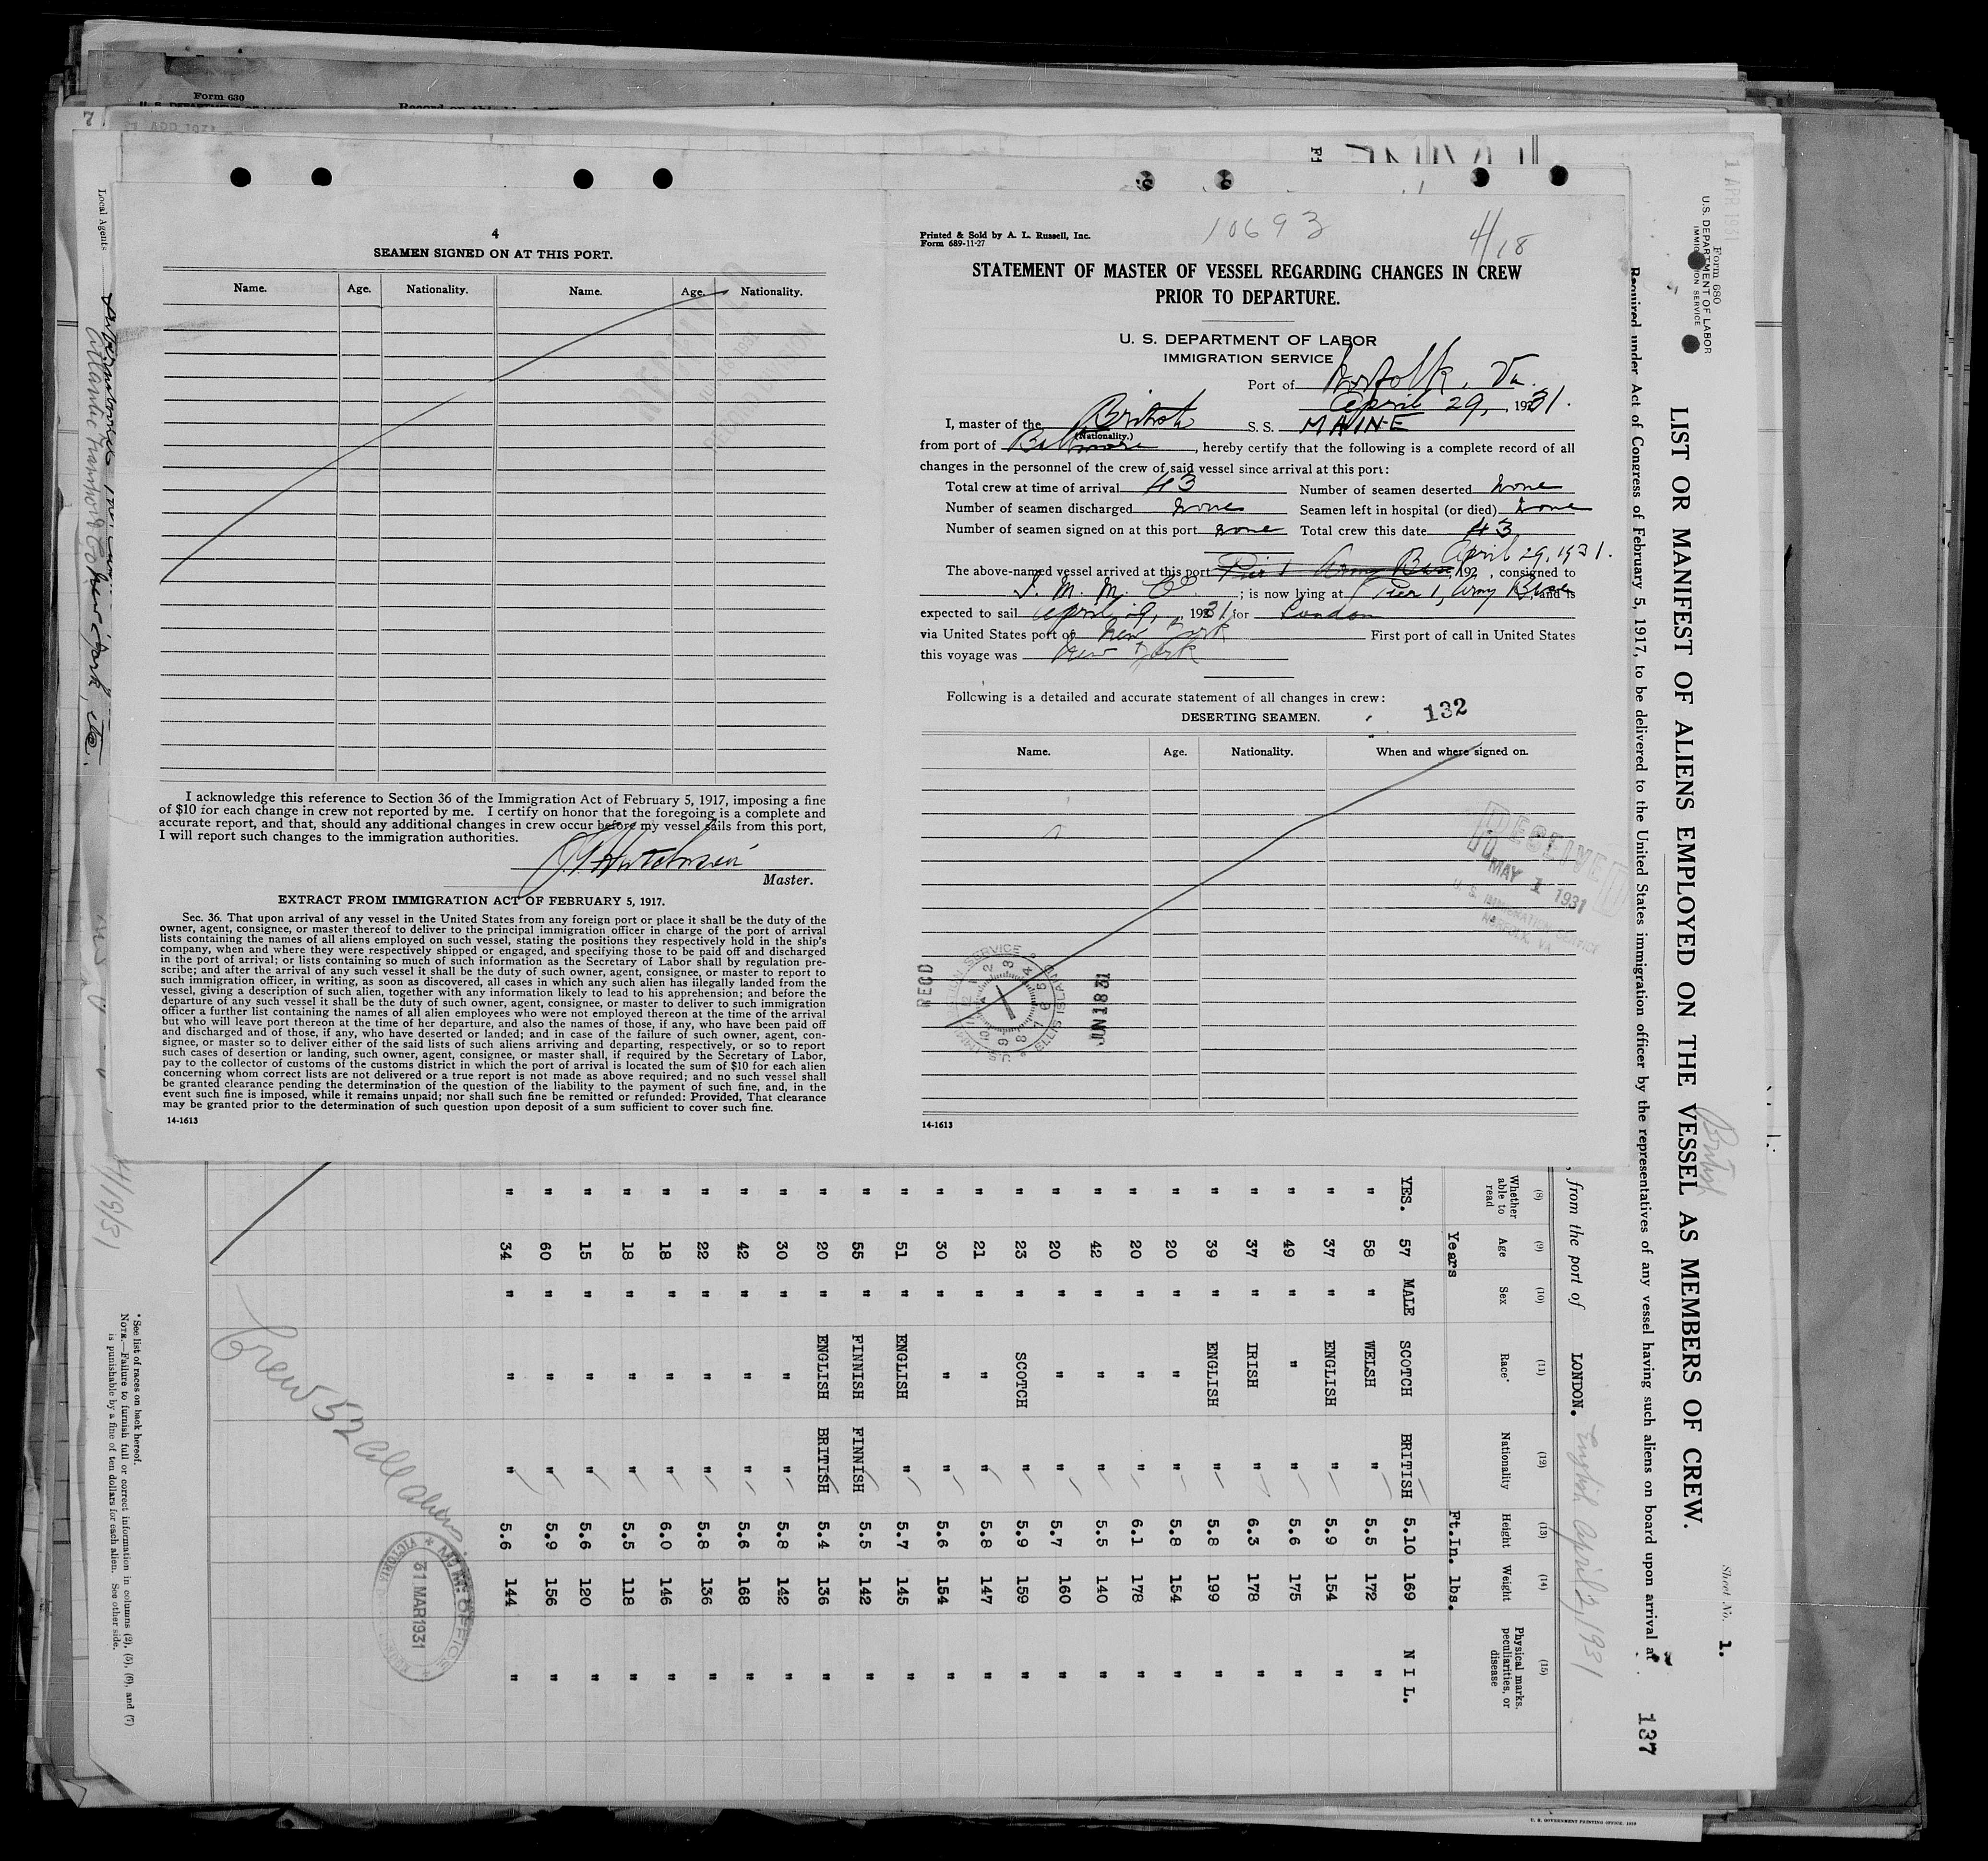 Form 630
7
4
SEAMEN SIGNED ON AT THIS PORT.
Name. Age. Nationality. Name. Age. Nationality.
I acknowledge this reference to Section 36 of the Immigration Act of February 5, 1917, imposing a fine
of $10 for each change in crew not reported by me. I certify on honor that the foregoing is a complete and
accurate report, and that, should any additional changes in crew occur before my vessel sails from this port,
I will report such changes to the immigration authorities.
Master.
EXTRACT FROM IMMIGRATION ACT OF FEBRUARY 5, 1917.
Sec. 36. That upon arrival of any vessel in the United States from any foreign port or place it shall be the duty of the
owner, agent, consignee, or master thereof to deliver to the principal immigration officer in charge of the port of arrival
lists containing the names of all aliens employed on such vessel, stating the positions they respectively hold in the ship's
company, when and where they were respectively shipped or engaged, and specifying those to be paid off and discharged
in the port of arrival; or lists containing so much of such information as the Secretary of Labor shall by regulation pre-
scribe; and after the arrival of any such vessel it shall be the duty of such owner, agent, consignee, or master to report to
such immigration officer, in writing, as soon as discovered, all cases in which any such alien has illegally landed from the
vessel, giving a description of such alien, together with any information likely to lead to his apprehension; and before the
departure of any such vessel it shall be the duty of such owner, agent, consignee, or master to deliver to such immigration
officer a further list containing the names of all alien employees who were not employed thereon at the time of the arrival
but who will leave port thereon at the time of her departure, and also the names of those, if any, who have been paid off
and discharged and of those, if any, who have deserted or landed; and in case of the failure of such owner, agent, con-
signee, or master so to deliver either of the said lists of such aliens arriving and departing, respectively, or so to report
such cases of desertion or landing, such owner, agent, consignee, or master shall, if required by the Secretary of Labor,
pay to the collector of customs of the customs district in which the port of arrival is located the sum of $10 for each alien
concerning whom correct lists are not delivered or a true report is not made as above required; and no such vessel shall
be granted clearance pending the determination of the question of the liability to the payment of such fine, and, in the
event such fine is imposed, while it remains unpaid; nor shall such fine be remitted or refunded: Provided, That clearance
may be granted prior to the determination of such question upon deposit of a sum sufficient to cover such fine.
14-1613
Printed & Sold by A. L. Russell, Inc.
Form 689-11-27
10693
4/18
STATEMENT OF MASTER OF VESSEL REGARDING CHANGES IN CREW
PRIOR TO DEPARTURE.
U. S. DEPARTMENT OF LABOR
IMMIGRATION SERVICE
Port of Norfolk, Va.
April 29, 1931.
I, master of the British S. S. MAINE
(Nationality.)
from port of Baltimore, hereby certify that the following is a complete record of all
changes in the personnel of the crew of said vessel since arrival at this port:
Total crew at time of arrival 43 Number of seamen deserted none
Number of seamen discharged none Seamen left in hospital (or died) none
Number of seamen signed on at this port none Total crew this date 43
April 29, 1931.
The above-named vessel arrived at this port Pier 1 Army Base, 192 , consigned to
I. M. M. Co ; is now lying at Pier 1, Army Base, and is
expected to sail April 29, 1931 for London
via United States port of New York First port of call in United States
this voyage was New York
Following is a detailed and accurate statement of all changes in crew:
DESERTING SEAMEN.
132
Name. Age. Nationality. When and where signed on.
RECEIVED
MAY 1 1931
U. S. IMMIGRATION SERVICE
NORFOLK, VA
RECD
ELLIS ISLAND
JUN 18 31
14-1613
Form 680
U.S. DEPARTMENT OF LABOR
IMMIGRATION SERVICE
1 APR 1931
LIST OR MANIFEST OF ALIENS EMPLOYED ON THE VESSEL AS MEMBERS OF CREW.
British
Sheet No. 1.
Required under Act of Congress of February 5, 1917, to be delivered to the United States immigration officer by the representatives of any vessel having such aliens on board upon arrival at
137
, from the port of LONDON. English April 2, 1931
(8) (9) (10) (11) (12) (13) (14) (15)
Whether able to read Age Sex Race* Nationality Height Weight Physical marks, peculiarities, or disease
Years Ft.In. lbs.
YES. 57 MALE SCOTCH BRITISH 5.10 169 N I L.
" 58 " WELSH " 5.5 172 "
" 37 " ENGLISH " 5.9 154 "
" 49 " " " 5.6 175 "
" 37 " IRISH " 6.3 178 "
" 39 " ENGLISH " 5.8 199 "
" 20 " " " 5.8 154 "
" 20 " " " 6.1 178 "
" 42 " " " 5.5 140 "
" 20 " " " 5.7 160 "
" 23 " SCOTCH " 5.9 159 "
" 21 " " " 5.8 147 "
" 30 " " " 5.6 154 "
" 51 " ENGLISH " 5.7 145 "
" 55 " FINNISH FINNISH 5.5 142 "
" 20 " ENGLISH BRITISH 5.4 136 "
" 30 " " " 5.8 142 "
" 42 " " " 5.6 168 "
" 22 " " " 5.8 136 "
" 18 " " " 6.0 146 "
" 18 " " " 5.5 118 "
" 15 " " " 5.6 120 "
" 60 " " " 5.9 156 "
" 34 " " " 5.6 144 "
Crew 52 all aliens
M.M. OFFICE
31 MAR 1931
VICTORIA
* See list of races on back hereof.
NOTE.—Failure to furnish full or correct information in columns (2), (5), (6), and (7)
is punishable by a fine of ten dollars for each alien. See other side.
Local Agents
Atlantic Transport Co New York
4/19/31
U. S. GOVERNMENT PRINTING OFFICE